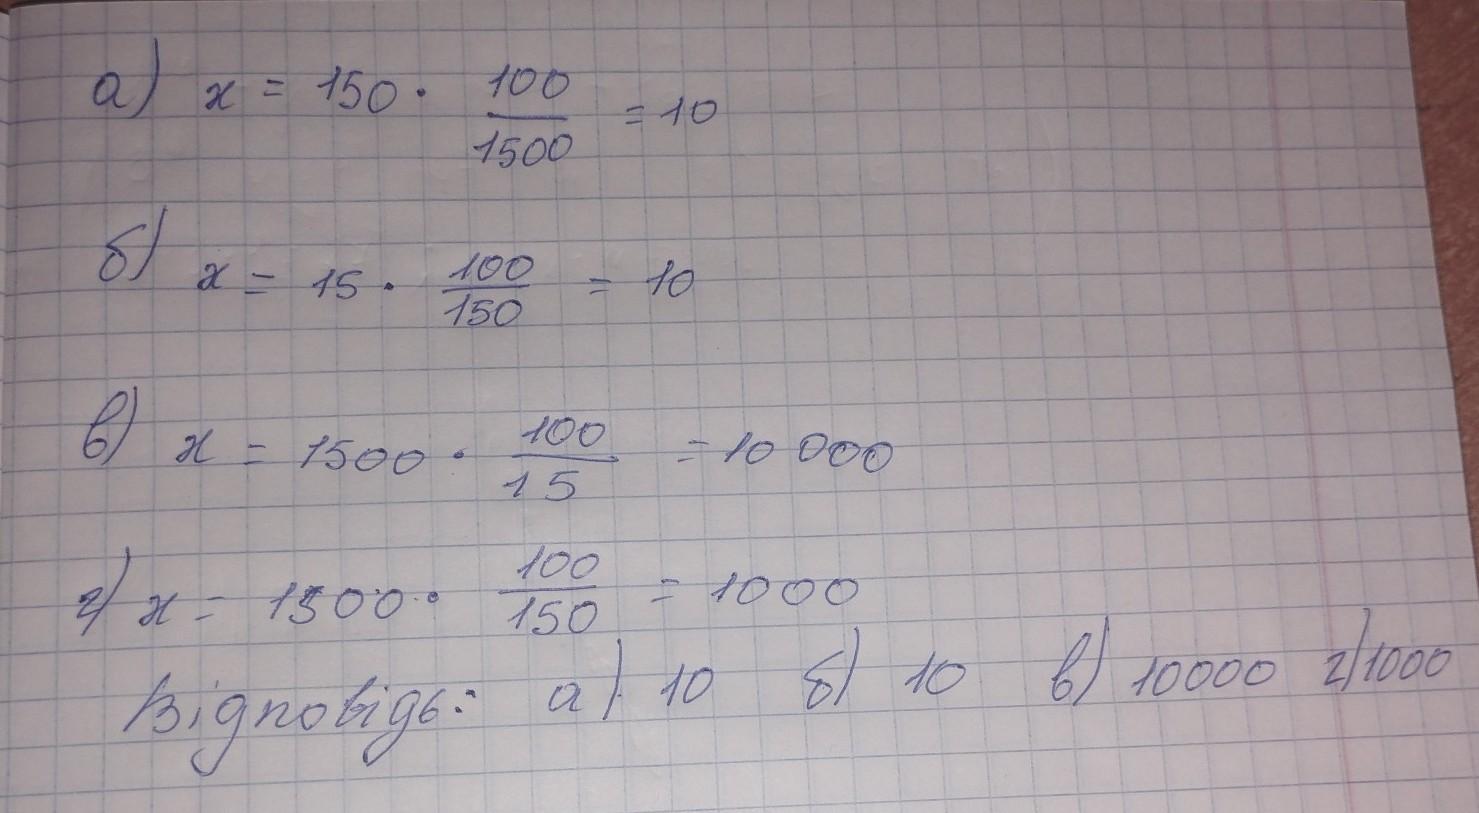 а) x = 150 · 100/1500 = 10
б) x = 15 · 100/150 = 10
в) x = 1500 · 100/15 = 10 000
г) x = 1500 · 100/150 = 1000
Відповідь: а) 10 б) 10 в) 10000 г) 1000